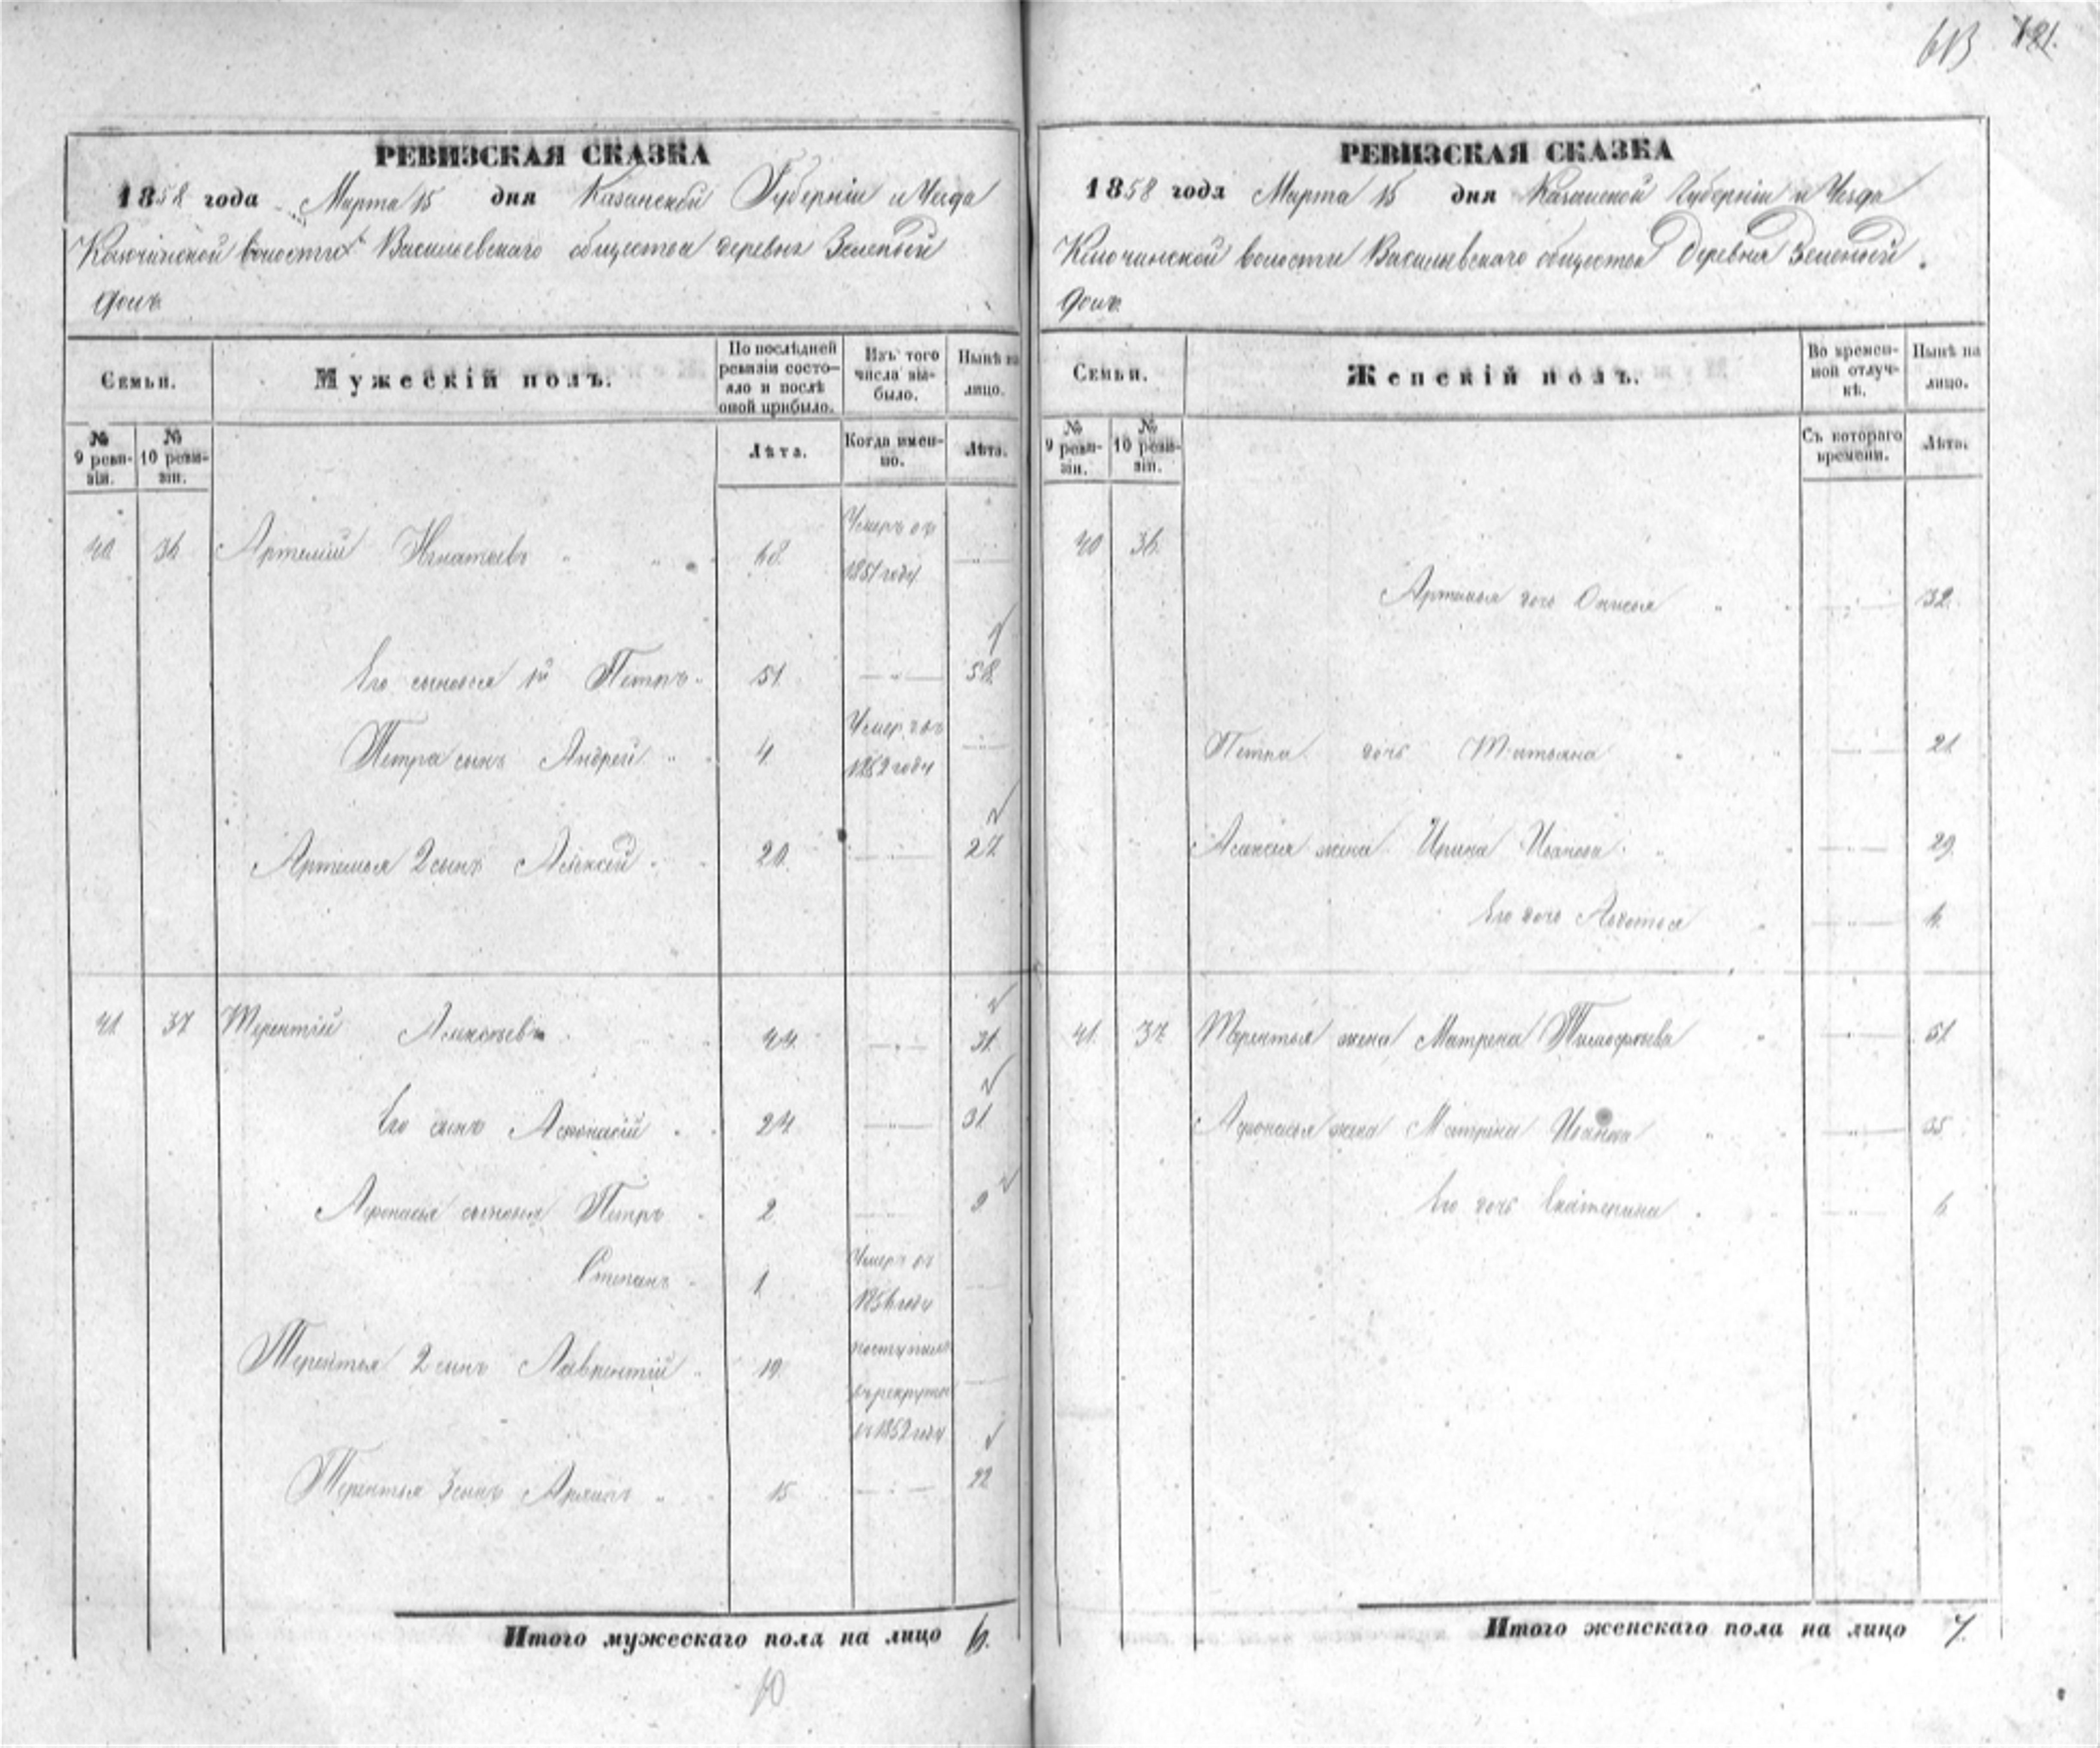 613 121.
РЕВИЗСКАЯ СКАЗКА
1858 года Марта 15 дня Казанской Губерніи и Уезда
Ключинской волости Васильевскаго общества деревни Зеленой
Долъ
Семьи.
Мужескій полъ.
По послѣдней ревизіи состояло и послѣ оной прибыло.
Изъ того числа выбыло.
Нынѣ на лицо.
№ 9 ревизіи.
№ 10 ревизіи.
Лѣта.
Когда именно.
Лѣта.
40. 36. Артемій Игнатьевъ 68. Умеръ въ 1851 году
Его сыновья 1й Петръ 51. 58.
Петра сынъ Андрей 4. Умеръ въ 1852 году
Артемья 2 сынъ Алексей 20. 27
41. 37 Терентій Алексеевъ 44. 51.
Его сынъ Афонасій 24. 31
Афонасья сыновья Петръ 2 9
Степанъ 1. Умеръ въ 1856 году
Терентья 2 сынъ Лаврентій 19. поступилъ въ рекруты въ 1852 году
Терентья 3 сынъ Архипъ 15 22
Итого мужескаго пола на лицо 6.
10
РЕВИЗСКАЯ СКАЗКА
1858 года Марта 15 дня Казанской Губерніи и Уезда
Ключинской волости Васильевскаго общества Деревни Зеленой
Долъ.
Семьи.
Женскій полъ.
Во временной отлучкѣ.
Нынѣ на лицо.
№ 9 ревизіи.
№ 10 ревизіи.
Съ котораго времени.
Лѣта.
40 36.
Артемья дочь Онисья 32.
Петра дочь Татьяна 21.
Алексея жена Ирина Иванова 29.
Его дочь Авдотья 6.
41. 37. Терентья жена Матрена Тимофеева 51
Афонасья жена Матрена Иванова 35.
Его дочь Екатерина 6.
Итого женскаго пола на лицо 7.